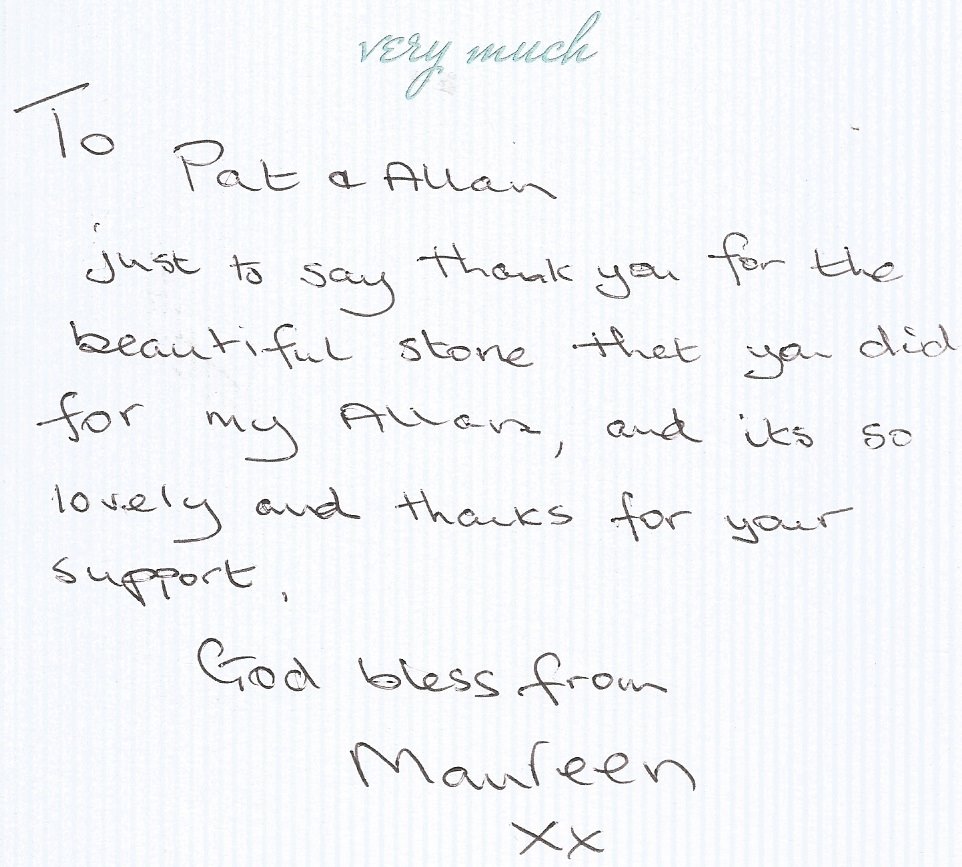 very much
To
Pat & Allan
just to say thank you for the
beautiful stone that you did
for my Allan, and its so
lovely and thanks for your
support,
God bless from
Maureen
xx